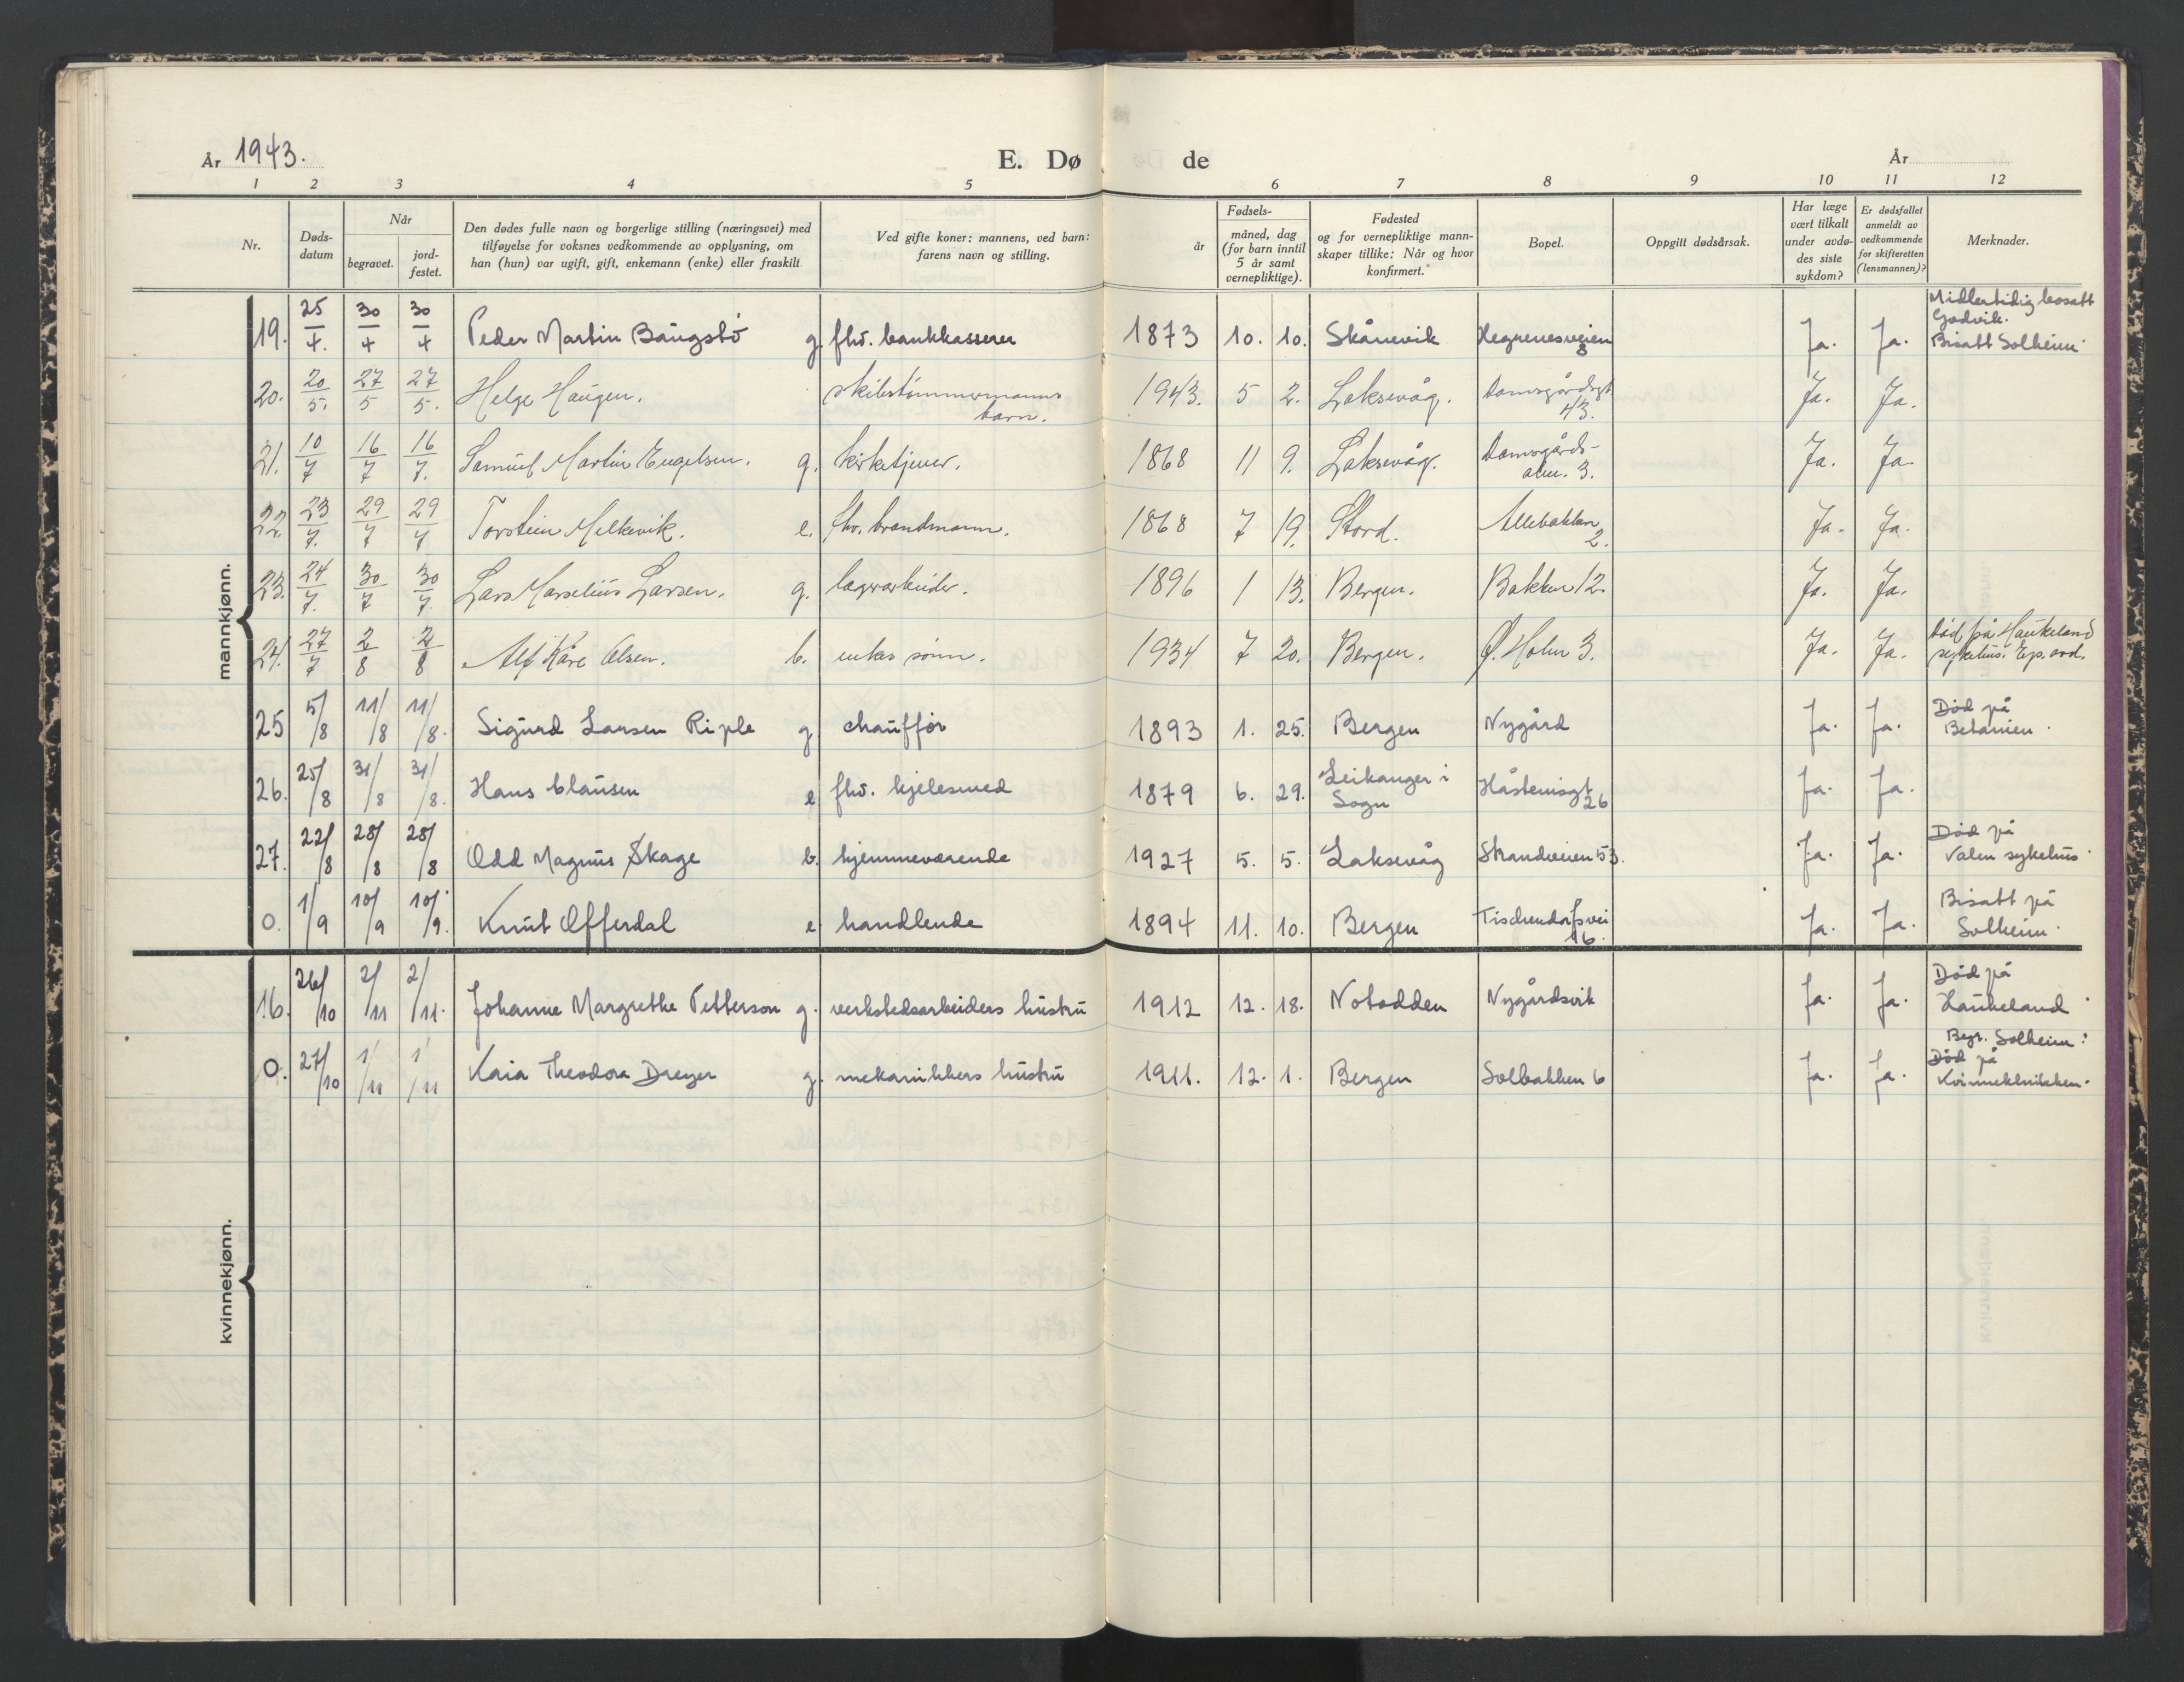 År 1943.
E. Dø de
År
1 2 3 4 5 6 7 8 9 10 11 12
Nr.
Døds-
datum
Når
begravet.
jord-
festet.
Den dødes fulle navn og borgerlige stilling (næringsvei) med
tilføyelse for voksnes vedkommende av opplysning, om
han (hun) var ugift, gift, enkemann (enke) eller fraskilt
Ved gifte koner: mannens, ved barn:
farens navn og stilling.
Fødsels-
år
måned, dag
(for barn inntil
5 år samt
vernepliktige).
Fødested
og for vernepliktige mann-
skaper tillike: Når og hvor
konfirmert.
Bopel.
Oppgitt dødsårsak.
Har læge
vært tilkalt
under avdø-
des siste
sykdom?
Er dødsfallet
anmeldt av
vedkommende
for skifteretten
(lensmannen)?
Merknader.
mannkjønn.
19. 25/4. 30/4 30/4 Peder Martin Baugstø g. fhv. bankkasserer 1873 10. 10. Skånevik Hegrenesveien 8 Ja. Ja. Midlertidig bosatt
Godvik.
Bisatt Solheim
20. 20/5. 27/5 27/5. Helge Haugen. skibstømmermanns
barn. 1943. 5 2. Laksevåg. Damsgårdsgt.
43. Ja. Ja.
21. 10/7 16/7 16/7. Samuel Martin Engelsen. g. kirketjener. 1868 11 9. Laksevåg. Damsgårds-
alm. 3. Ja. Ja.
22. 23/7. 29/7 29/7 Torstein Melkevik. e. fhv. brandmann. 1868 7 19. Stord. Allebakken
2. Ja. Ja.
23. 24/7. 30/7 30/7. Lars Marselius Larsen. g. lagerarbeider. 1896 1 13. Bergen. Bakken 12. Ja. Ja.
24. 27/7 2/8 2/8 Alf Kåre Olsen. b. enkes sønn. 1934 7 20. Bergen. Ø. Holm 3. Ja. Ja. Død på Haukeland
sykehus. Ep. avd.
25 5/8 11/8 11/8. Sigurd Larsen Riple g chauffør 1893 1. 25. Bergen Nygård Ja. Ja. Død på
Betanien.
26. 25/8 31/8 31/8. Hans Clausen e fhv. kjelesmed 1879 6. 29. Leikanger i
Sogn Håsteinsgt
26 Ja. Ja.
27. 22/8 28/8 28/8 Odd Magnus Skage b. hjemmeværende 1927 5. 5. Laksevåg Strandveien 53. Ja. Ja. Død på
Valen sykehus.
0. 1/9 10/9 10/9. Knut Offerdal e handlende 1894 11. 10. Bergen Tischendorfsvei
16. Ja. Ja. Bisatt på
Solheim.
kvinnekjønn.
16. 26/10 2/11 2/11. Johanne Margrethe Petterson g. verkstedsarbeiders hustru 1912 12. 18. Notodden Nygårdsvik Ja. Ja. Død på
Haukeland.
Begr. Solheim:
0. 27/10 1/11 1/11 Kaia Theodora Dreyer g. mekanikkers hustru 1911. 12. 1. Bergen Solbakken 6 Ja. Ja. Død på
Kvinneklinikken.